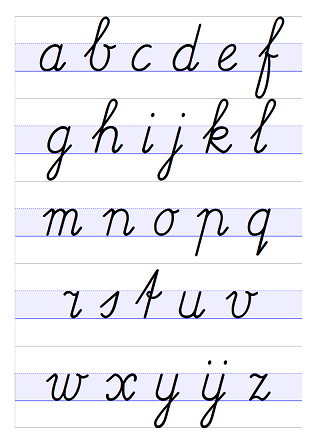 a b c d e f
g h i j k l
m n o p q
r s t u v
w x y ÿ z